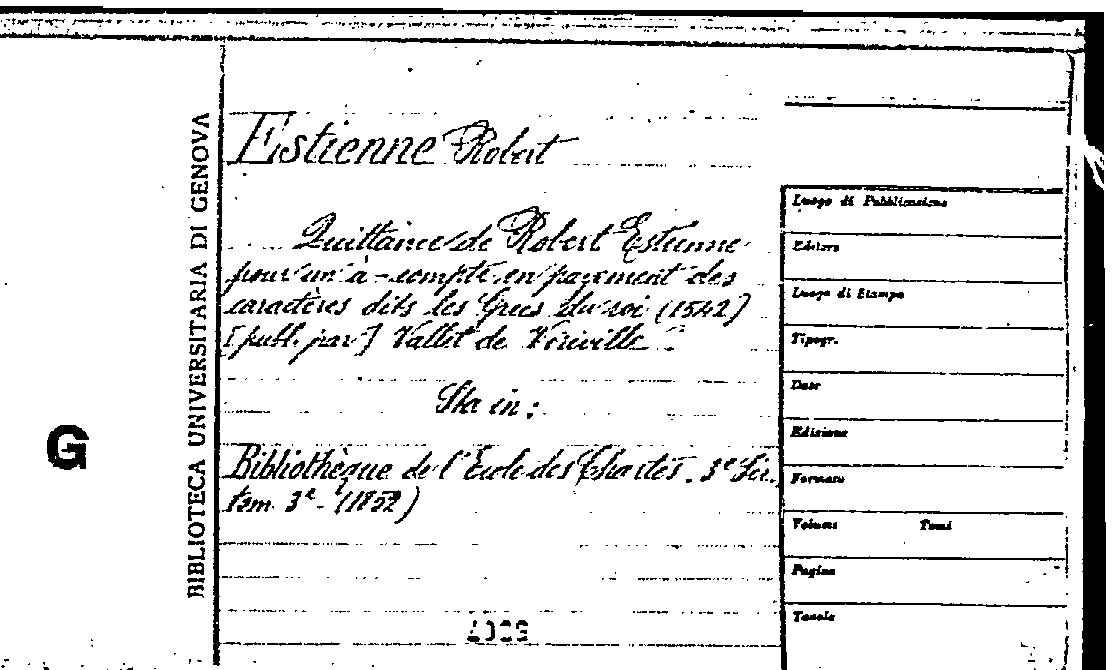 BIBLIOTECA UNIVERSITARIA DI GENOVA
G
Estienne Robert
Quittance de Robert Estienne
pour un à-compte en payement des
caractères dits les Grecs du roi (1542)
[publ. par] Vallet de Viriville.
Sta in:
Bibliothèque de l'École des Chartes. 3e Sér.,
tom. 3e - (1852)
Luogo di Pubblicazione
Editore
Luogo di Stampa
Tipogr.
Date
Edizione
Formato
Volumi Tomi
Pagine
Tavole